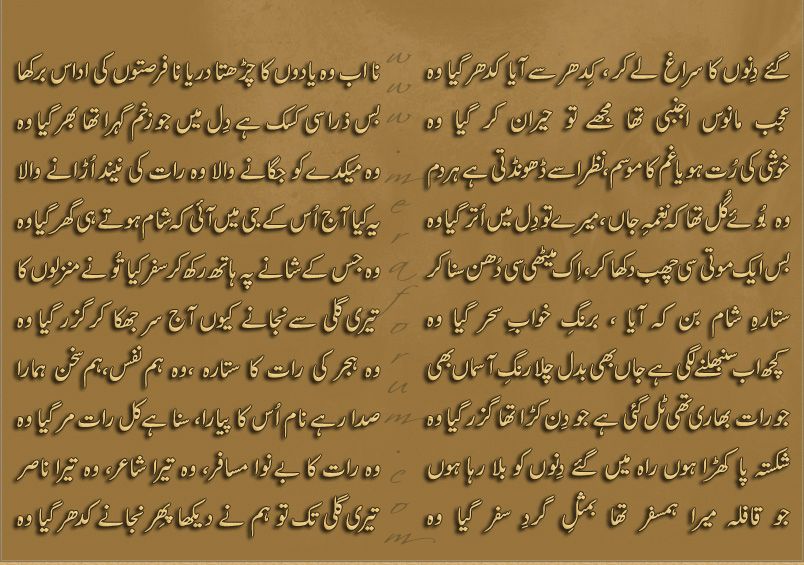 گئے دِنوں کا سراغ لے کر ، کِدھر سے آیا کدھر گیا وہ
عجب مانوس اجنبی تھا مجھے تو حیران کر گیا وہ
خوشی کی رُت ہو یا غم کا موسم، نظر اسے ڈھونڈتی ہے ہر دم
وہ بُوئے گُل تھا کہ نغمہِ جاں، میرے تو دِل میں اُتر گیا وہ
بس ایک موتی سی چھب دکھا کر، اِک میٹھی سی دُھن سنا کر
ستارہِ شام بن کہ آیا ، برنگِ خوابِ سحر گیا وہ
کچھ اب سنبھلنے لگی ہے جاں بھی بدل چلا رنگِ آسماں بھی
جو رات بھاری تھی ٹل گئی ہے جو دِن کڑا تھا گزر گیا وہ
شکستہ پا کھڑا ہوں راہ میں گئے دِنوں کو بلا رہا ہوں
جو قافلہ میرا ہمسفر تھا بمثلِ گردِ سفر گیا وہ
نا اب وہ یادوں کا چڑھتا دریا نا فرصتوں کی اداس برکھا
بس ذرا سی کسک ہے دِل میں جو زخم گہرا تھا بھر گیا وہ
وہ میکدے کو جگانے والا وہ رات کی نیند اُڑانے والا
یہ کیا آج اُس کے جی میں آئی کہ شام ہوتے ہی گھر گیا وہ
وہ جس کے شانے پہ ہاتھ رکھ کر سفر کیا تُو نے منزلوں کا
تیری گلی سے نجانے کیوں آج سر جھکا کر گزر گیا وہ
وہ ہجر کی رات کا ستارہ ،وہ ہم نفس،ہم سخن ہمارا
صدا رہے نام اُس کا پیارا، سنا ہے کل رات مر گیا وہ
وہ رات کا بے نوا مسافر، وہ تیرا شاعر، وہ تیرا ناصر
تیری گلی تک تو ہم نے دیکھا پھر نجانے کدھر گیا وہ
www.meraforum.com